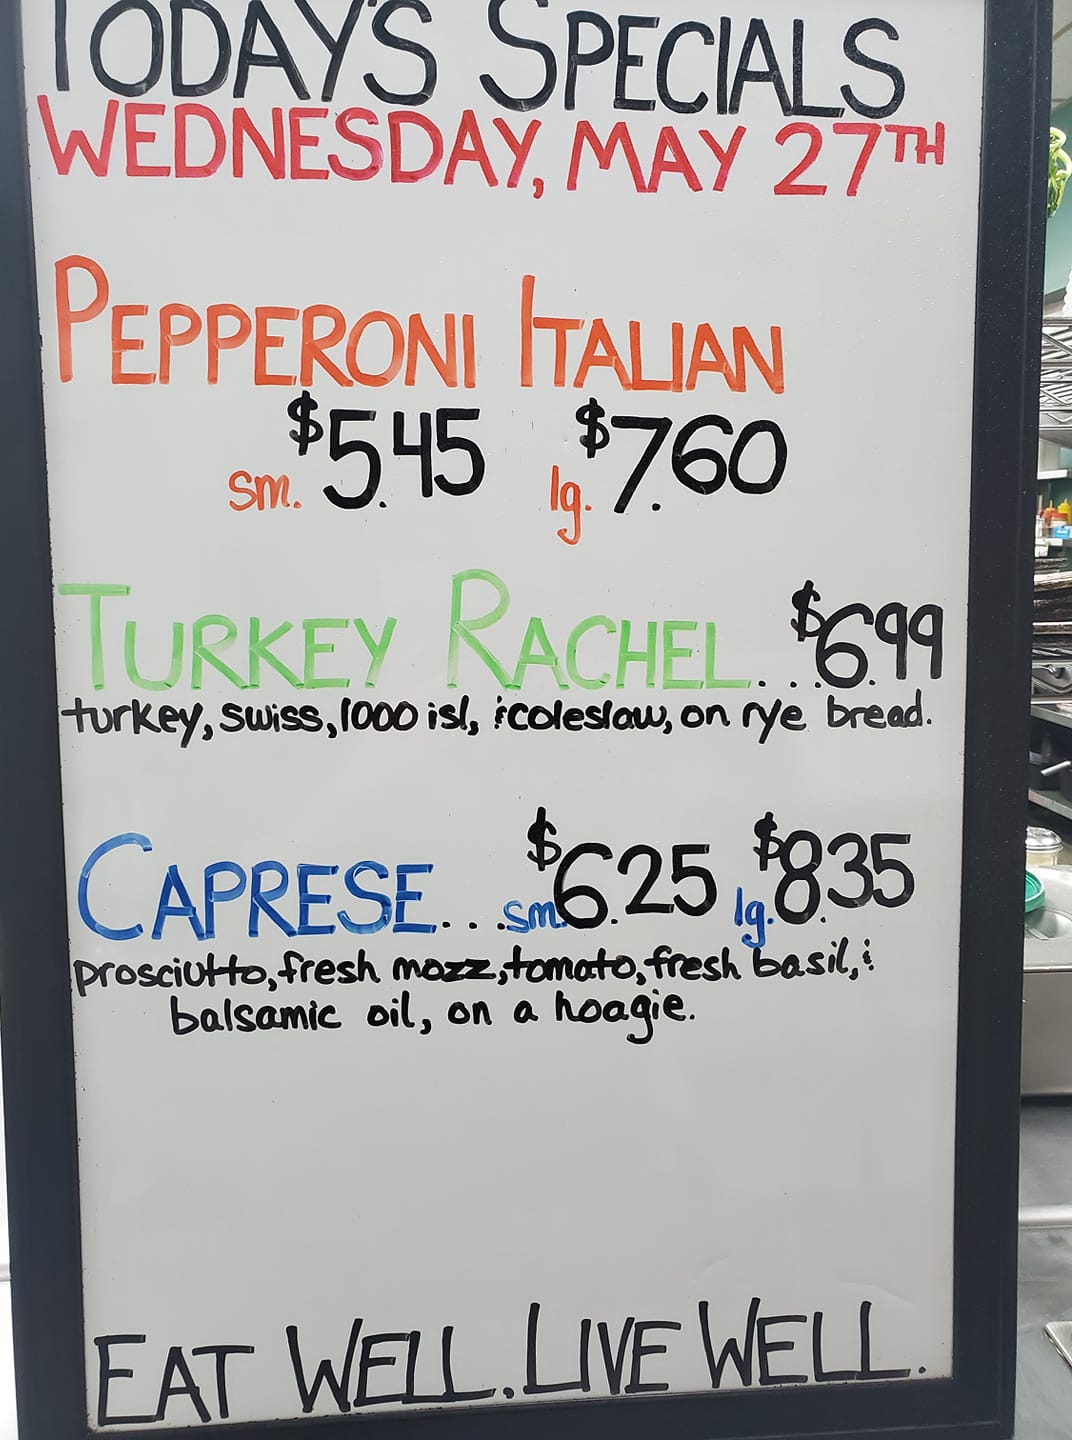 TODAY'S SPECIALS
WEDNESDAY, MAY 27TH
PEPPERONI ITALIAN
sm. $5.45 lg. $7.60
TURKEY RACHEL...$6.99
turkey, swiss, 1000 isl, & coleslaw, on rye bread.
CAPRESE...sm. $6.25 lg. $8.35
prosciutto, fresh mozz, tomato, fresh basil, &
balsamic oil, on a hoagie.
EAT WELL. LIVE WELL.